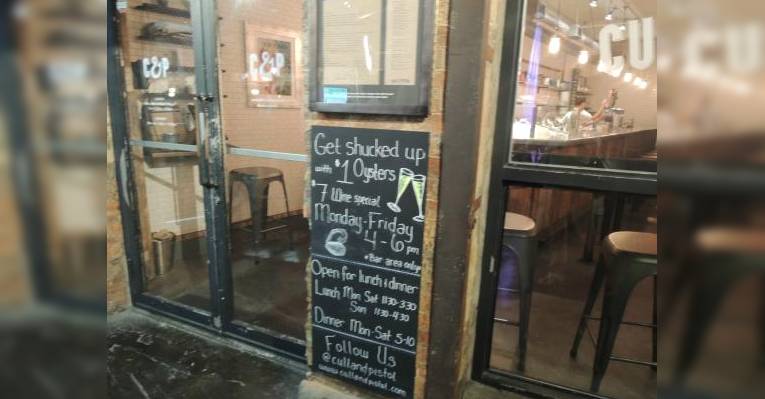 C&P
C&P
CU
Get shucked up
with $1 Oysters
$7 Wine special
Monday-Friday
4-6 pm
*Bar area only
Open for lunch & dinner
Lunch Mon Sat 1130-330
Sun 1130-430
Dinner Mon-Sat 5-10
Follow Us
@cullandpistol
www.cullandpistol.com